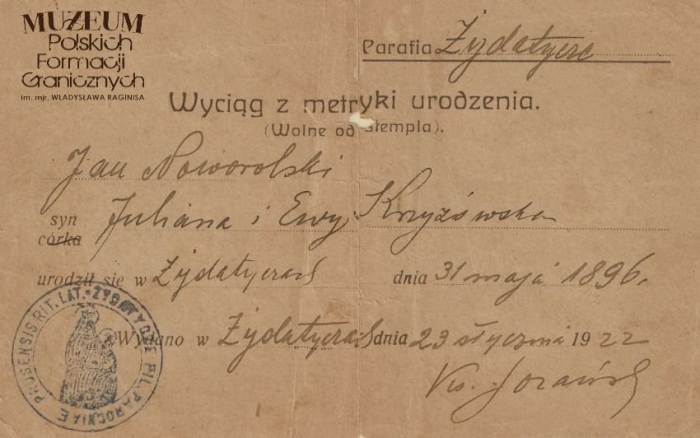 MUZEUM
Polskich
Formacji
Granicznych
im. mjr. WŁADYSŁAWA RAGINISA
Parafia Żydatycze
Wyciąg z metryki urodzenia.
(Wolne od stempla).
Jan Noworolski
syn
córka Juliana i Ewy Krzyżówska
urodził się w Żydatyczach dnia 31 maja 1896.
Wydano w Żydatyczach dnia 23 stycznia 1922
Ks.
RIT. LAT.